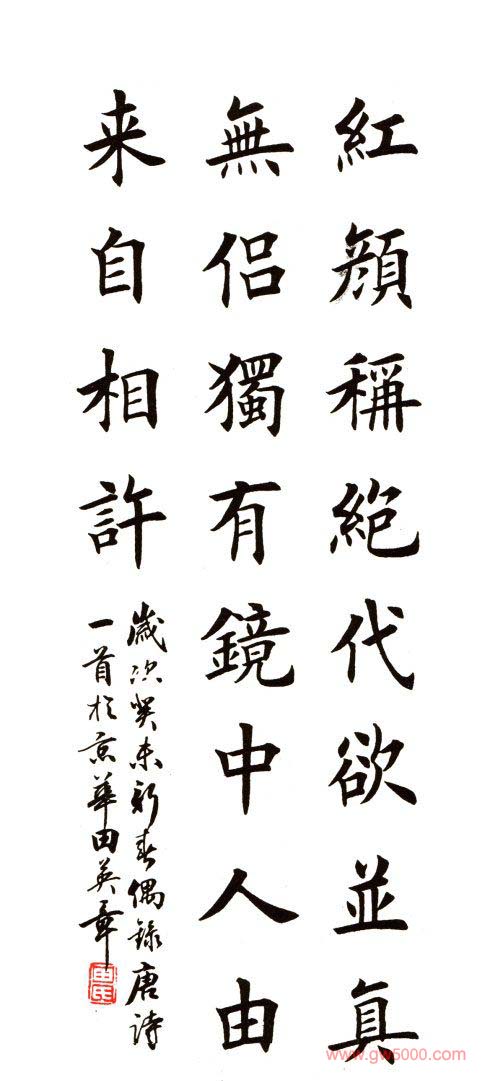 紅顏稱絕代欲並真
無侣獨有鏡中人由
来自相許
歲次癸未新春偶録唐詩
一首於京華田英章
www.gw5000.com